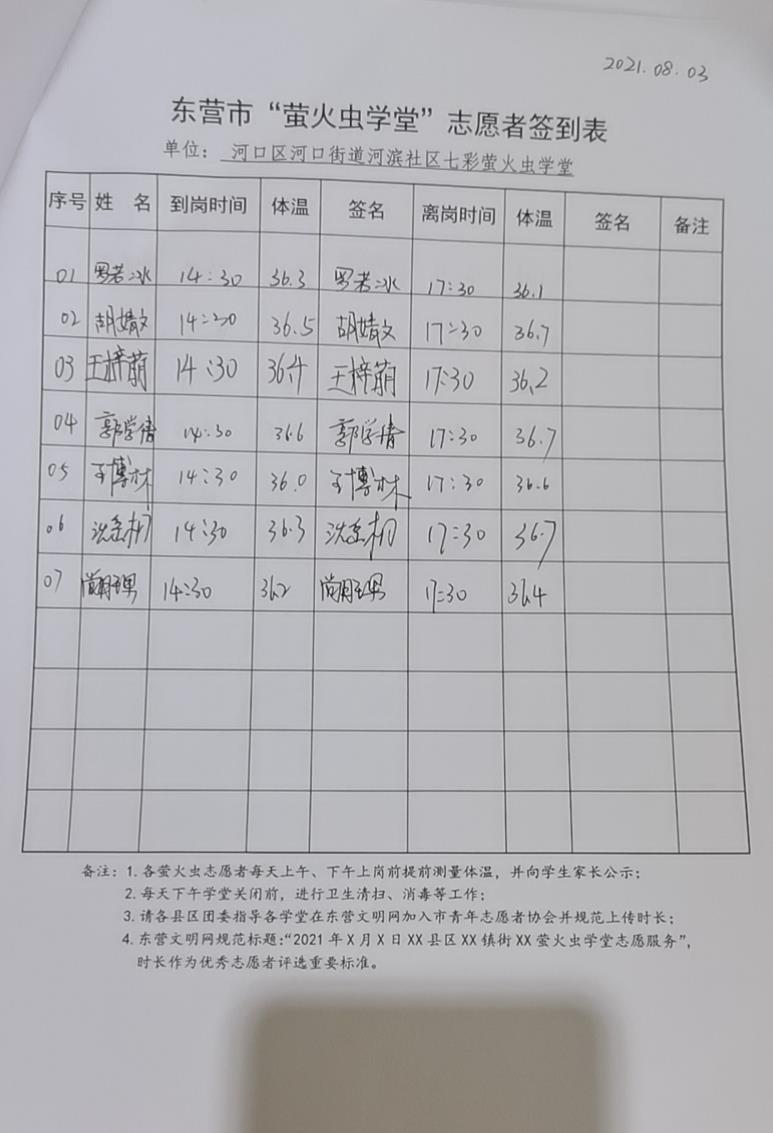 2021.08.03
东营市“萤火虫学堂”志愿者签到表
单位： 河口区河口街道河滨社区七彩萤火虫学堂
序号 姓 名 到岗时间 体温 签名 离岗时间 体温 签名 备注
01 罗若冰 14:30 36.3 罗若冰 17:30 36.1
02 胡婧文 14:20 36.5 胡婧文 17:30 36.7
03 王梓萌 14:30 36.4 王梓萌 17:30 36.2
04 郭学倩 14:30 36.6 郭学倩 17:30 36.7
05 王博林 14:30 36.0 王博林 17:30 36.6
06 14:30 36.3 17:30 36.7
07 14:30 36.2 17:30 36.4
备注：1. 各萤火虫志愿者每天上午、下午上岗前提前测量体温，并向学生家长公示；
2. 每天下午学堂关闭前，进行卫生清扫、消毒等工作；
3. 请各县区团委指导各学堂在东营文明网加入市青年志愿者协会并规范上传时长；
4. 东营文明网规范标题：“2021 年 X 月 X 日 XX 县区 XX 镇街 XX 萤火虫学堂志愿服务”，
时长作为优秀志愿者评选重要标准。